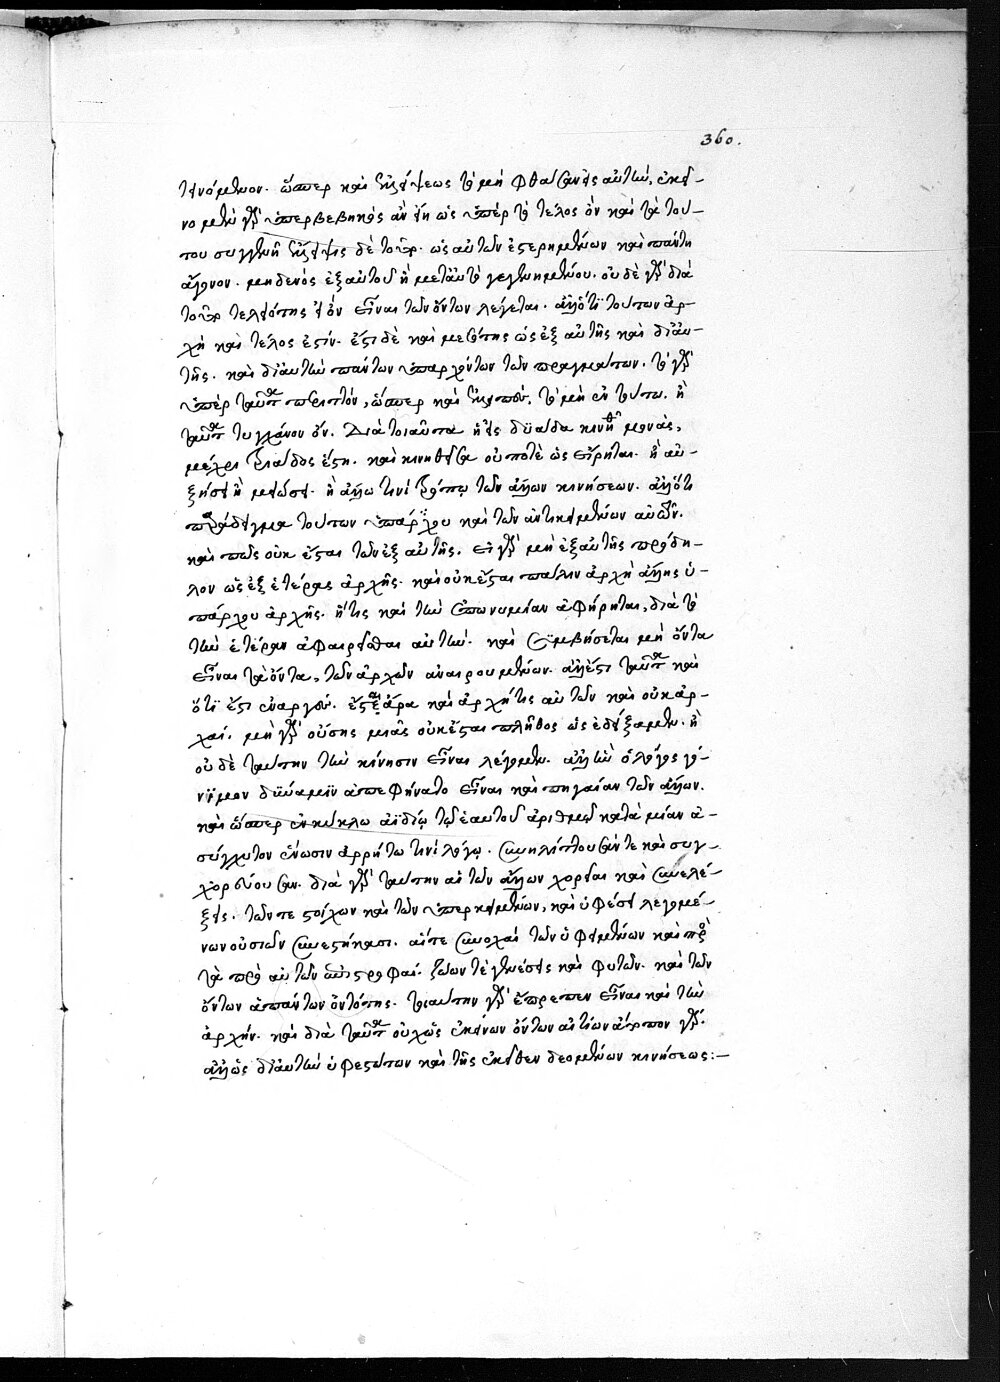 360.
τεινόμενον. ὥσπερ καὶ ἐλλείψεως τὸ μὴ φθασάσης αὐτὴν, ἐκτει-
νομένη γὰρ ὑπερβεβηκὸς ἂν εἴη ὡς ὑπὲρ τὸ τέλος ὂν καὶ τὰ τού-
του συγγενῆ ἔλλειψις δὲ τοῦ ὡς αὐτῶν ἐξῃρημένων καὶ πάντη
ἄγονον. μηδενὸς ἐξ αὐτοῦ ἢ μετ' αὐτὸ γεγενημένου. οὐδὲ γὰρ διὰ
τοῦ τελειότης τὸ ὂν εἶναι τῶν ὄντων λέγεται. ἀλλ' ὅτι τούτων ἀρ-
χὴ καὶ τέλος ἐστίν. ἔστι δὲ καὶ μεσότης ὡς ἐξ αὐτῆς καὶ δι' αὐ-
τῆς. καὶ δι' αὐτὴν πάντων ὑπαρχόντων τῶν πραγμάτων. τὸ γὰρ
ὑπὲρ ταῦτα περιττόν, ὥσπερ καὶ ἐλλιπές. τὸ μὴ ἐν τούτω. ἢ
ταῦτα τυγχάνον ὄν. Διὰ τοιαῦτα εἰς δυάδα κινηθεῖσα μονὰς,
μέχρι τριάδος ἔστη. καὶ κινηθεῖσα οὔποτε ὡς εἴρηται. ἢ αὐ-
ξήσει ἢ μειώσει. ἢ ἄλλω τινὶ τρόπω τῶν ἄλλων κινήσεων. ἀλλ' ὅτι
παράδειγμα τούτων ὑπάρχου καὶ τῶν ἀντικειμένων αὐτῶν.
καὶ πῶς οὐκ ἔσται τῶν ἐξ αὐτῆς. εἰ γὰρ μὴ ἐξ αὐτῆς πρόδη-
λον ὡς ἐξ ἑτέρας ἀρχῆς. καὶ οὐκ ἔσται πάλιν ἀρχὴ ἄλλης ὑ-
πάρχου ἀρχῆς. ἥτις καὶ τὴν ἐπωνυμίαν ἀφήρηται, διὰ τὸ
τὴν ἑτέραν ἀφαιρεῖσθαι αὐτήν. καὶ συμβήσεται μὴ ὄντα
εἶναι τὰ ὄντα, τῶν ἀρχῶν ἀναιρουμένων. ἀλλ' ἔστι ταῦτα καὶ
ὅτι ἔστι ἐναργές. ἔστιν ἄρα καὶ ἀρχή τις αὐτῶν καὶ οὐκ ἀρ-
χαί. μὴ γὰρ οὔσης μιᾶς οὐκ ἔσται πλῆθος ὡς ἐδείξαμεν. ἢ
οὐδὲ ταύτην τὴν κίνησιν εἶναι λέγομεν. ἀλλ' ἣν ὁ λόγος γό-
νιμον δύναμιν ἀπεφήνατο εἶναι καὶ πηγαίαν τῶν ἄλλων.
καὶ ὥσπερ ἐν κύκλω ἀϊδίῳ τῷ ἑαυτοῦ ἀριθμῷ κατὰ μίαν ἀ-
σύγχυτον ἕνωσιν ἀρρήτω τινὶ λόγῳ. συνελίττουσάν τε καὶ συγ-
χορεύουσαν. διὰ γὰρ ταύτην αἱ τῶν ἄλλων χορεῖαι καὶ συνελέ-
ξεις. τῶν τε στοίχων καὶ τῶν ὑπερκειμένων, καὶ ὑφέσει λεγομέ-
νων οὐσιῶν συνεστήκασι. αἵτε συνοχαὶ τῶν ὑφειμένων καὶ πρὸς
τὰ πρὸ αὐτῶν ἐπιστροφαί. ζώων τε γενέσεις καὶ φυτῶν. καὶ τῶν
ὄντων ἁπάντων ὀντότης. τοιαύτην γὰρ ἔπρεπεν εἶναι καὶ τὴν
ἀρχήν. καὶ διὰ ταῦτα οὐχ ὡς ἐκείνων ὄντων αἰτίων ἄτοπον γάρ.
ἀλλ' ὡς δι' αὐτὴν ὑφεστώτων καὶ τῆς ἐκεῖθεν δεομένων κινήσεως:—